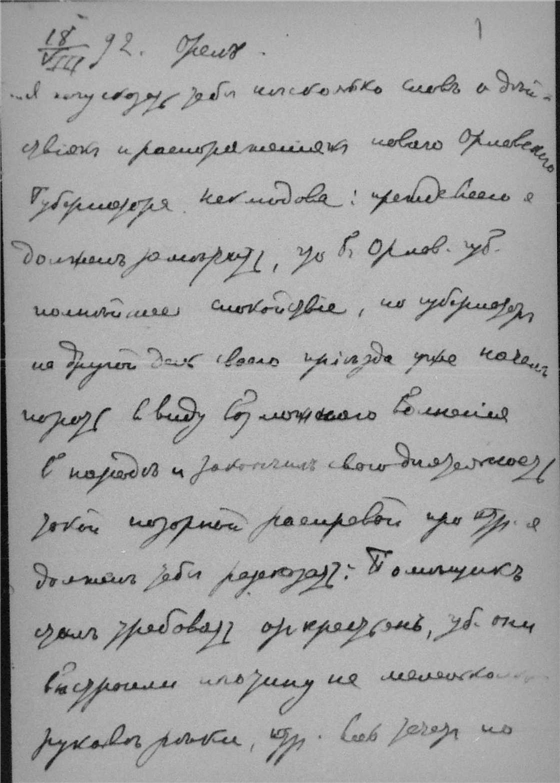 18/VIII 92. Орелъ.
Я хочу сказать тебѣ нѣсколько словъ о дѣй-
ствіяхъ и распоряженіяхъ новаго Орловскаго
Губернатора Неклюдова: прежде всего я
долженъ замѣтить, что въ Орлов. губ.
полнѣйшее спокойствіе, но губернаторъ
на другой день своего пріѣзда уже началъ
пороть въ виду возможнаго волненія
въ народѣ и закончилъ свою дѣятельность
такой позорной расправой про ктр. я
долженъ тебѣ разсказать: Помѣщикъ
сталъ требовать отъ крестьянъ, чтб. они
выстроили плотину на маленькомъ
рукавѣ рѣчки, ктр. весь течетъ по